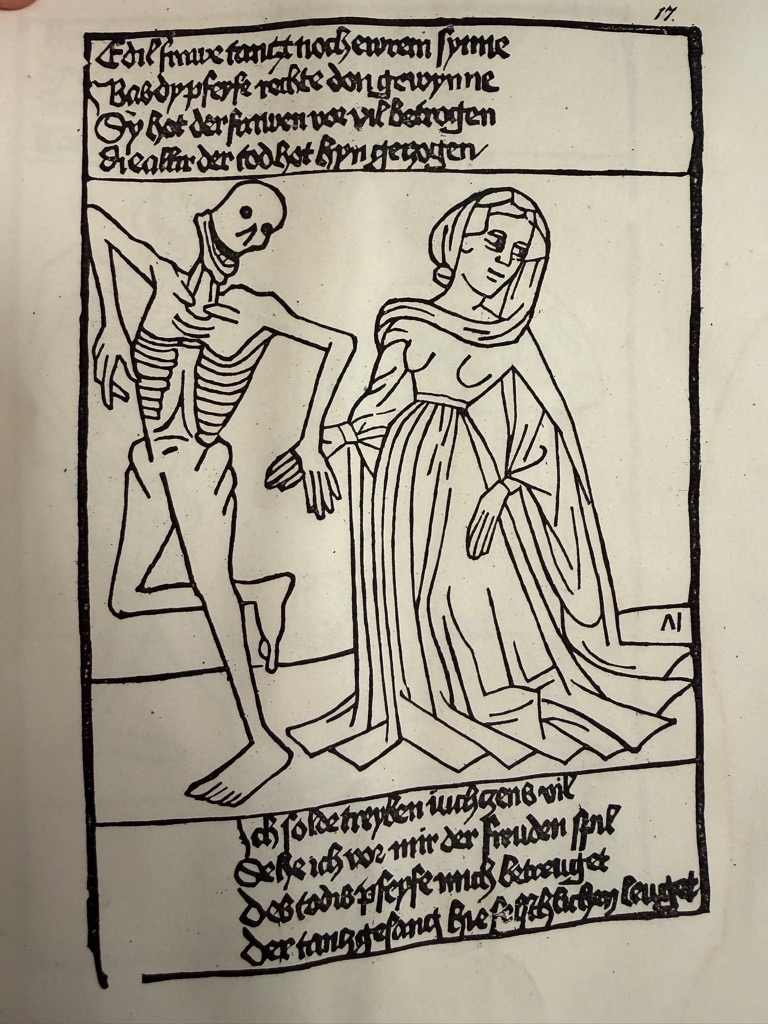 17.
Edil frawe tanczt noch ewrem synne
Bas dy pfeyfe rechte don gewynne
Sy hot der frawen vor vil betrogen
die allir der tod hot hyn geczogen
Ich solde treyben iuchczens vil
Sehe ich vor mir der freuden spil
Des todis pfeyfe mich betreuget
Der tanczgesang hie leuget